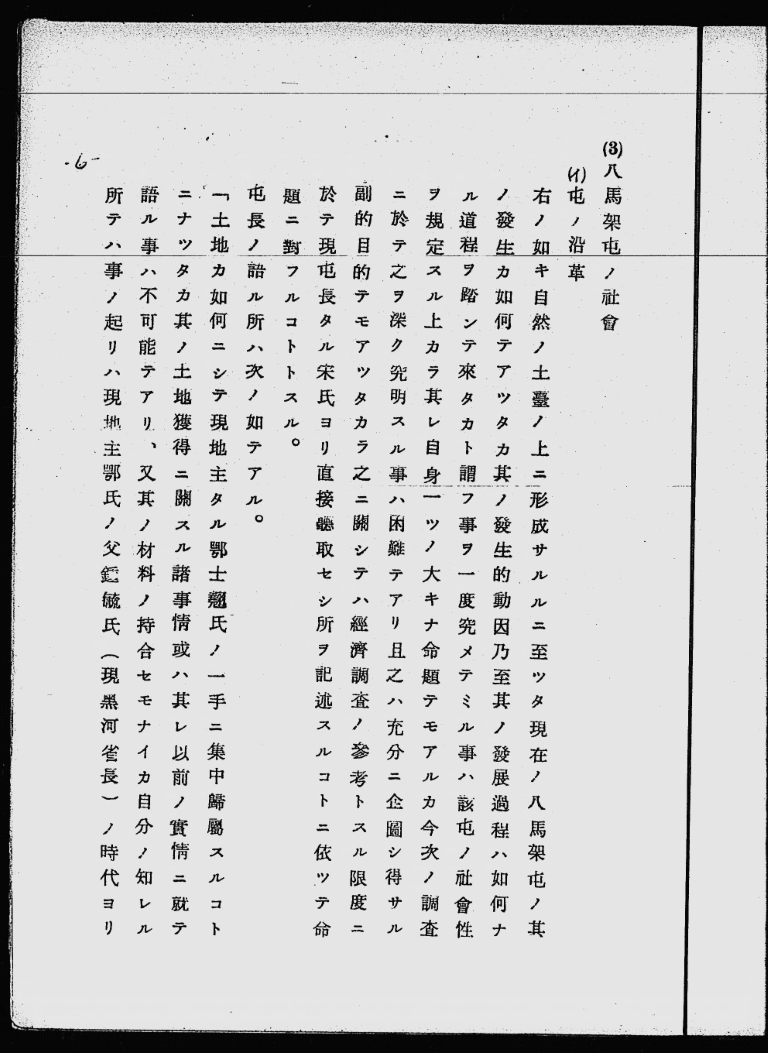 (3)八馬架屯ノ社會
(イ)屯ノ沿革
右ノ如キ自然ノ土臺ノ上ニ形成サルルニ至ツタ現在ノ八馬架屯ノ其
ノ發生カ如何テアツタカ其ノ發生的動因乃至其ノ發展過程ハ如何ナ
ル道程ヲ踏ンテ來タカト謂フ事ヲ一度究メテミル事ハ該屯ノ社會性
ヲ規定スル上カラ其レ自身一ツノ大キナ命題テモアルカ今次ノ調査
ニ於テ之ヲ深ク究明スル事ハ困難テアリ且之ハ充分ニ企圖シ得サル
副的目的テモアツタカラ之ニ關シテハ經濟調査ノ參考トスル限度ニ
於テ現屯長タル宋氏ヨリ直接聽取セシ所ヲ記述スルコトニ依ツテ命
題ニ對フルコトトスル。
屯長ノ語ル所ハ次ノ如テアル。
「土地カ如何ニシテ現地主タル鄂士翹氏ノ一手ニ集中歸屬スルコト
ニナツタカ其ノ土地獲得ニ關スル諸事情或ハ其レ以前ノ實情ニ就テ
語ル事ハ不可能テアリ、又其ノ材料ノ持合セモナイカ自分ノ知レル
所テハ事ノ起リハ現地主鄂氏ノ父毓氏(現黑河省長)ノ時代ヨリ
-6-